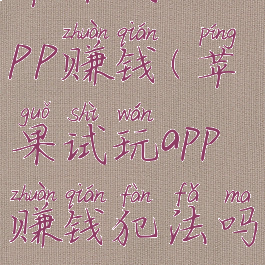 zhuàn qián píng
pp赚钱(苹
guǒ shì wán
果试玩app
zhuàn qián fàn fǎ ma
赚钱犯法吗